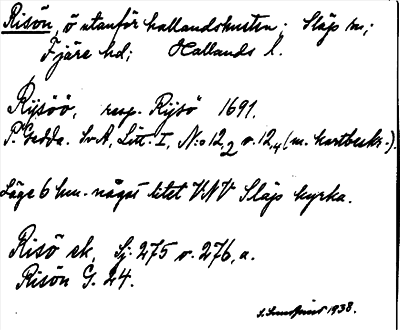 Risön, ö utanför hallandskusten; Släp sn;
Fjäre hd; Hallands l.
Rijsöö, resp. Rijsö 1691.
P. Gedda. SvA, Litt. I, N:o 12,2 o. 12,4 (m. kartbeskr.).
Läge 6 km. något litet VNV Släp kyrka.
Risö ek, Sj. 275 o. 276, a.
Risön G. 24.
1938.